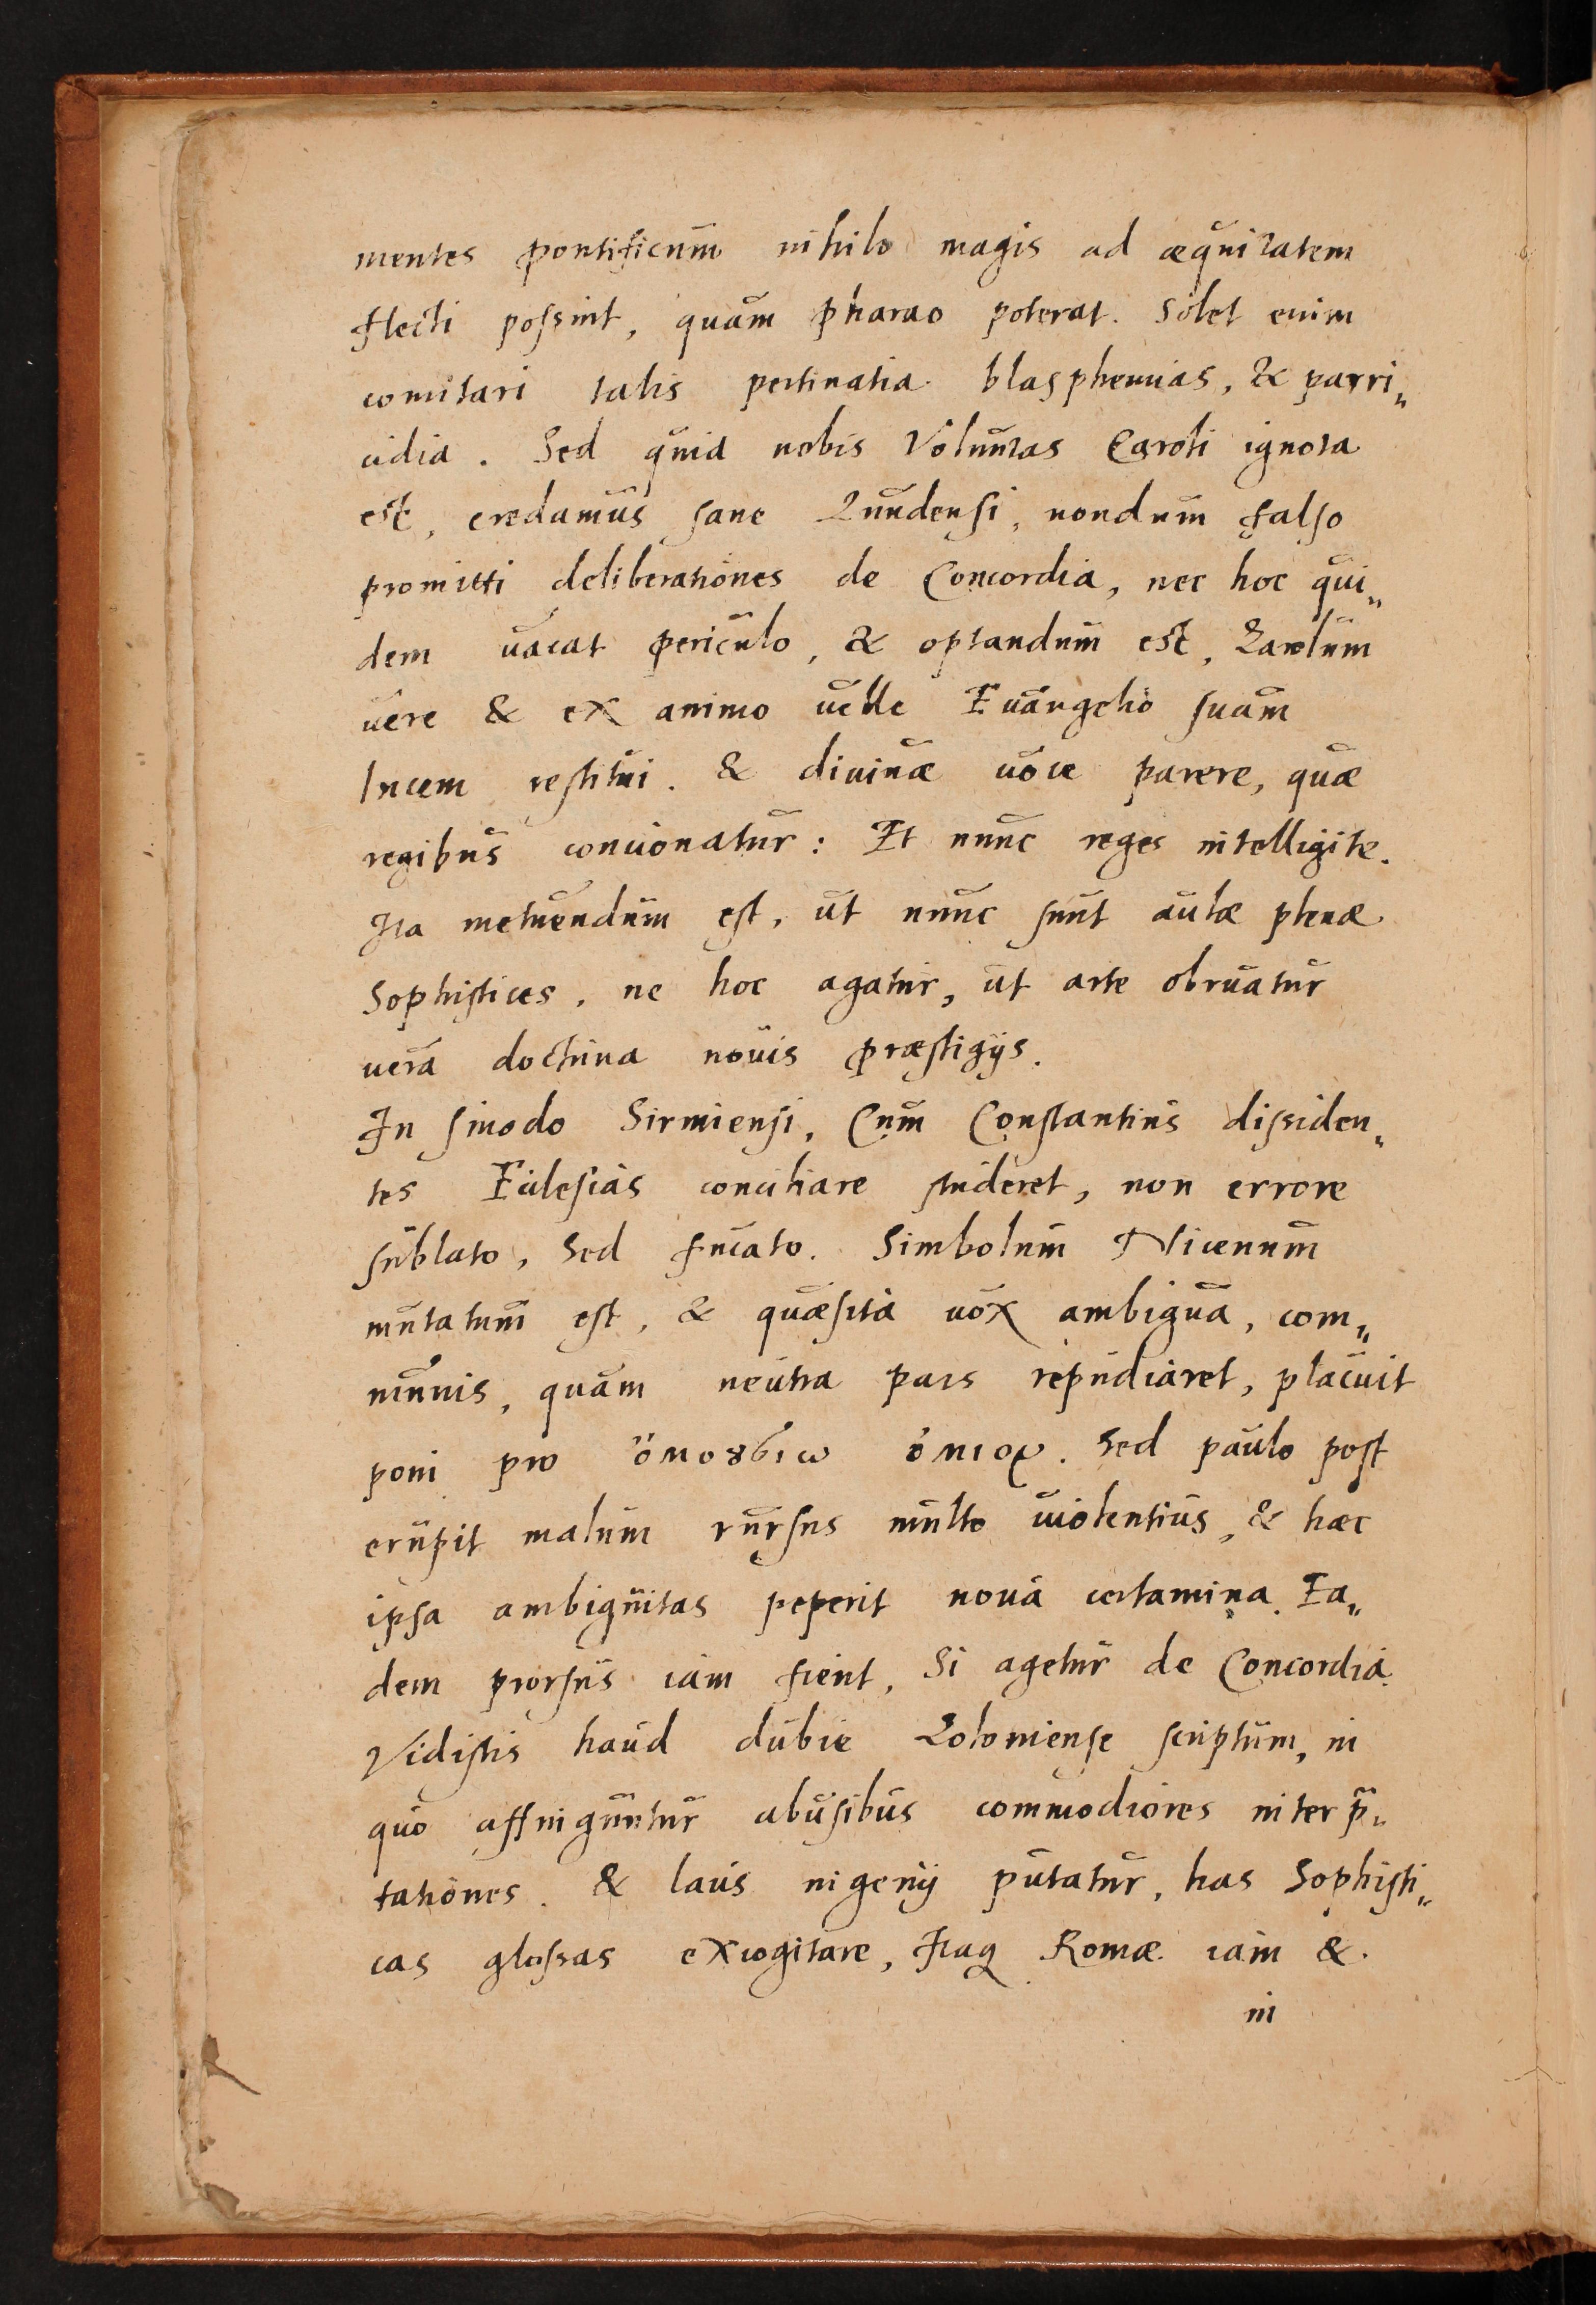 mentes pontificum nihilo magis ad æquitatem
flecti possint, quam pharao poterat. Solet enim
comitari talis pertinatia blasphemias, & parri„
cidia. Sed quia nobis Voluntas Caroli ignota
est, credamus sane Lundensi, nondum falso
promitti deliberationes de Concordia, nec hoc qui„
dem uacat periculo, & optandum est, Carolum
uere & ex animo uelle Euangelio suam
lucem restitui. & diuinæ uoce parere, quæ
regibus concionatur: Et nunc reges intelligite.
Ita metuendum est, ut nunc sunt aulæ plenæ
Sophistices, ne hoc agatur, ut arte obruatur
uera doctrina nouis præstigijs.
In sinodo Sirmiensi, Cum Constantius dissiden„
tes Eclesias conciliare studeret, non errore
sublato, Sed fucato. Simbolum Nicenum
mutatum est, & quæsita uox ambigua, com„
munis, quam neutra pars repudiaret, placuit
poni pro ὁμοουσίω ὅμιον. Sed paulo post
erupit malum rursus multo uiolentius, & hæc
ipsa ambiguitas peperit noua certamina. Ea„
dem prorsus iam fient, Si agetur de Concordia.
Vidistis haud dubie Coloniense scriptum, in
quo affinguntur abusibus commodiores interp̄„
tationes. & laus ingenij putatur, has Sophisti„
cas glossas excogitare, Itaq Romæ iam &
in